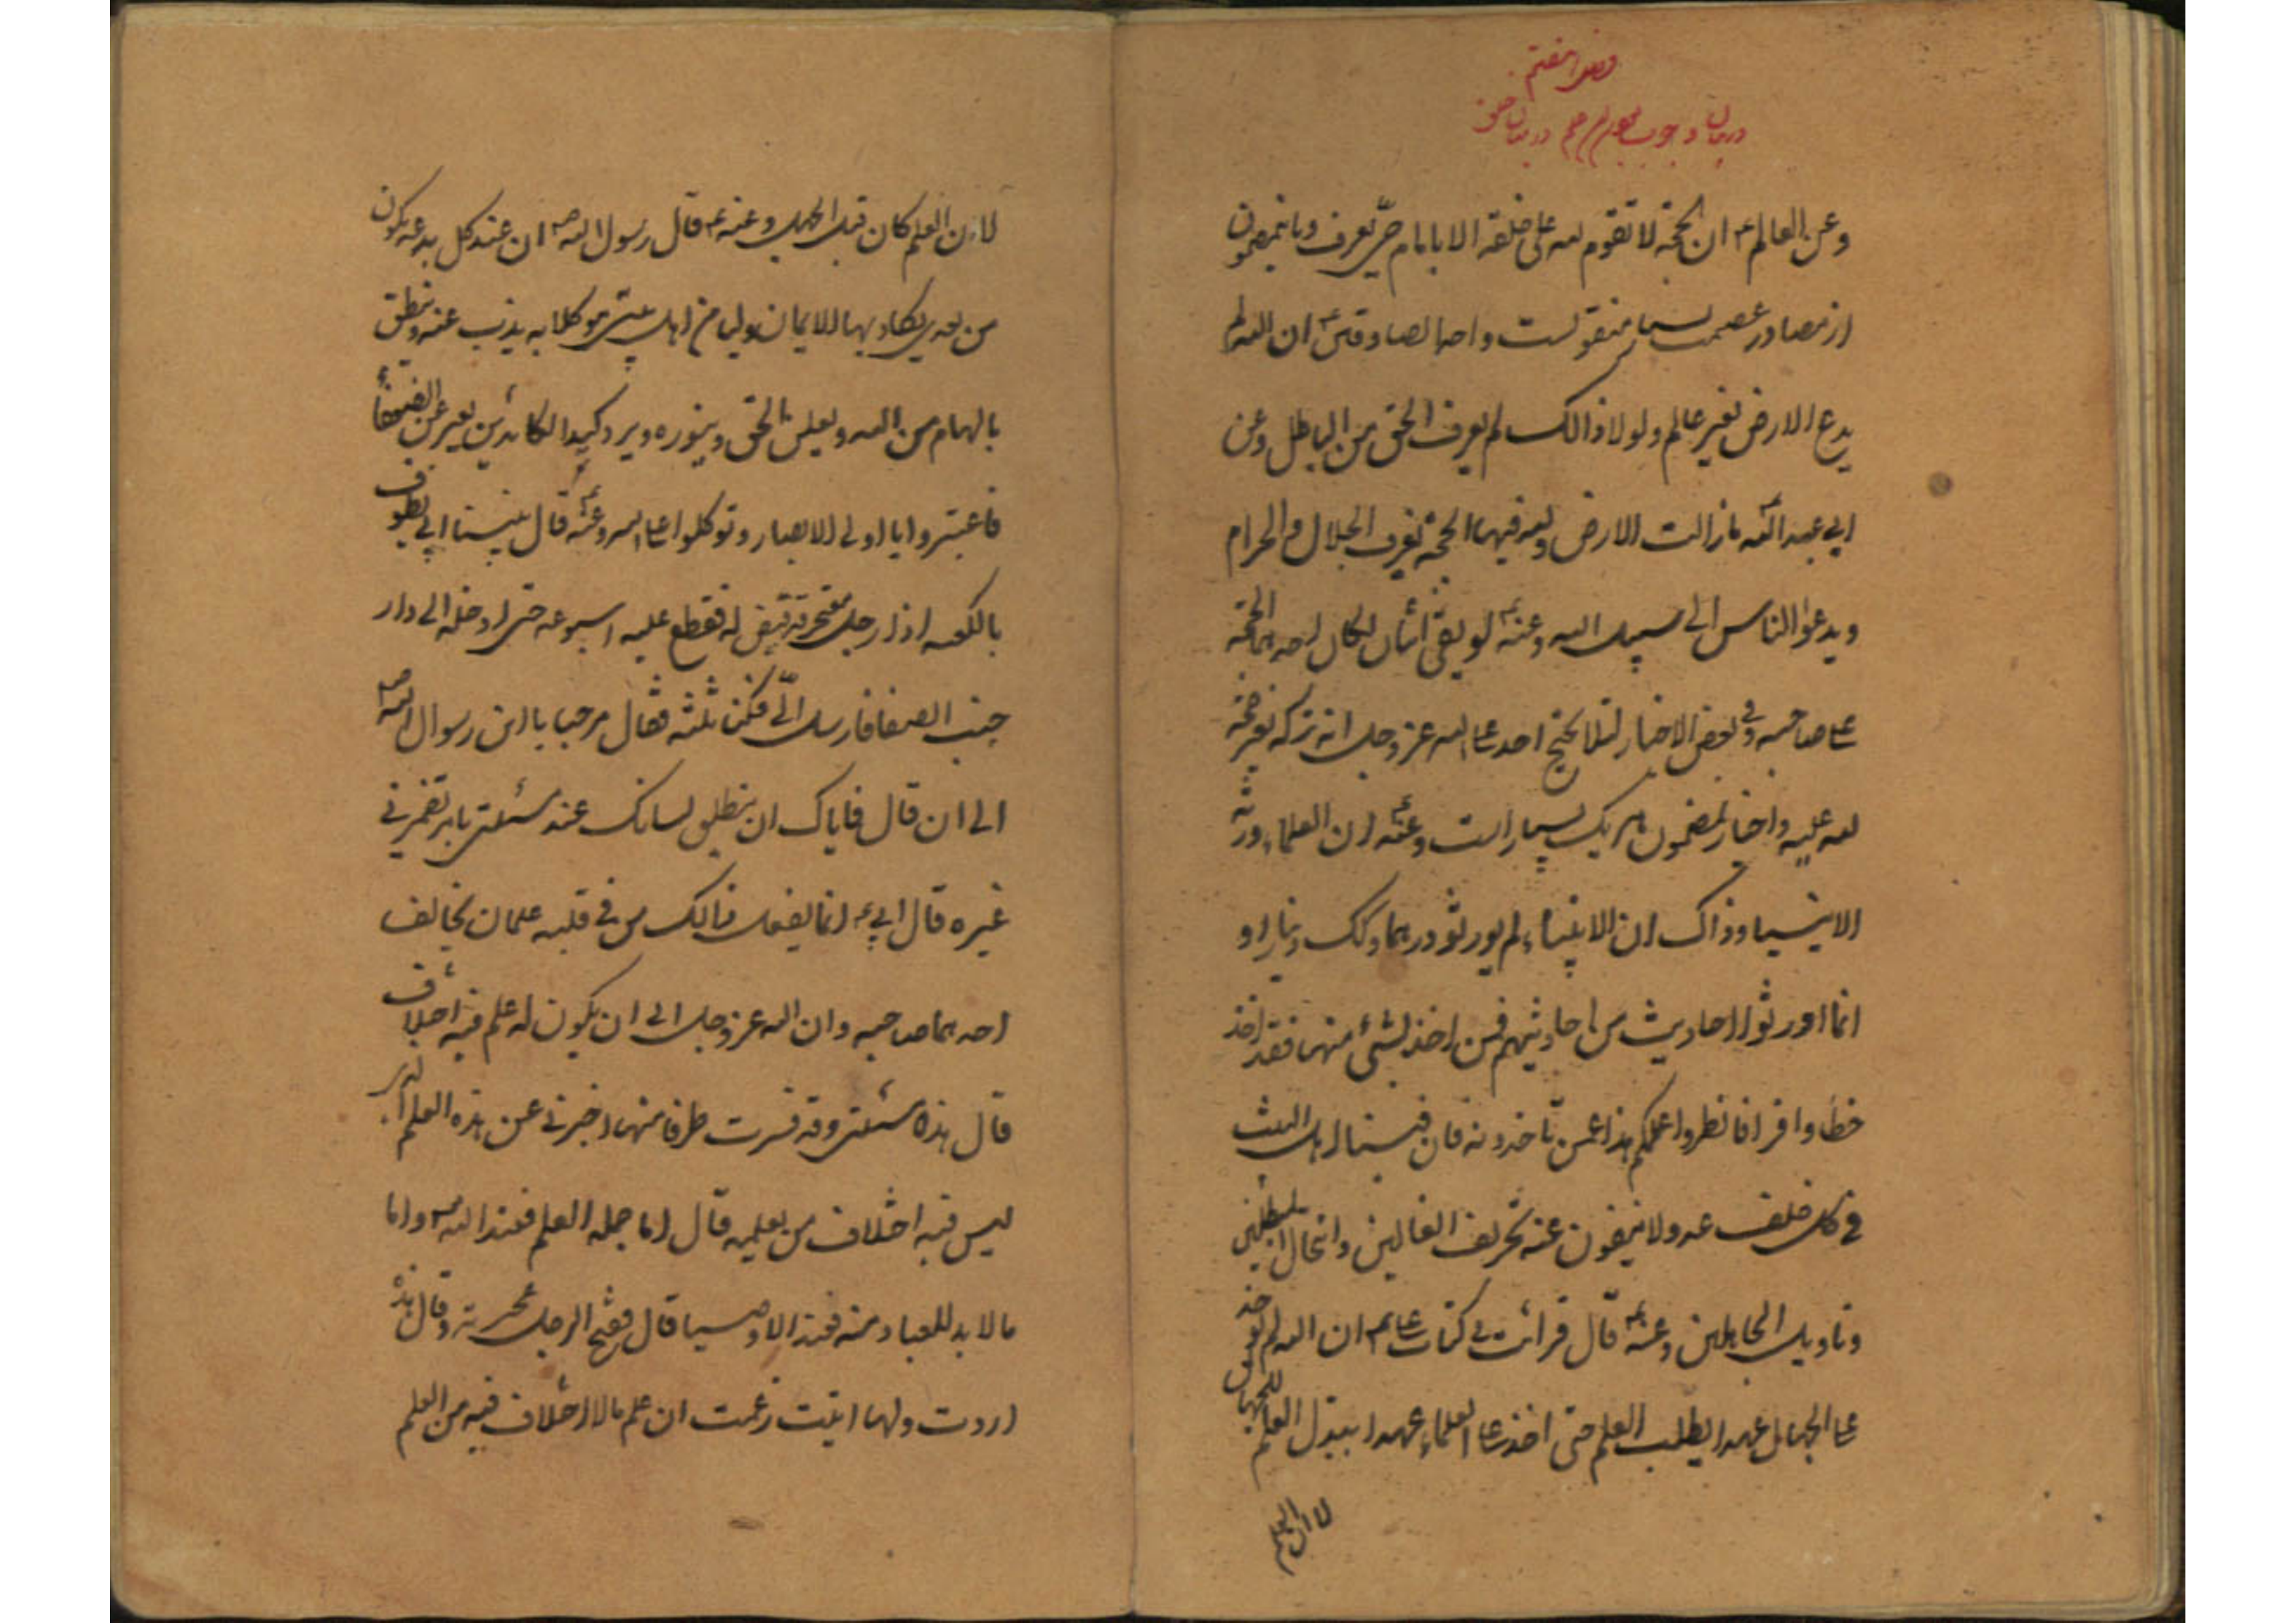 فصل هفتم
در بیان وجوب بودن در میان خلق
وعن العالم ع ان الحجة لا تقوم لله علی خلقه الا بامام حتی یعرف وباینمضمون
از مصادر عصمت بسیار منقولست واحد الصادقین ع ان الله لم
یدع الارض بغیر عالم ولولا ذالک لم یعرف الحق من الباطل وعن
ابی عبد الله ع مازالت الارض ولله فیها الحجة یعرف الحلال والحرام
ویدعوا الناس الی سبیل الله وعنه ع لو بقی اثنان لکان احدهما الحجة
علی صاحبه وفی بعض الاخبار لئلا یحتج احد علی الله عز وجل انه ترکه بغیر حجة
لله علیه واخبار بمضمون هر یک بسیار است وعنه ع ان العلماء ورثة
الانبیا وذاک ان الانبیاء لم یورثو درهما وکک دینارا و
انما اورثوا احادیث من احادیثهم فمن اخذ بشیء منها فقد اخذ
حظا وافرا فانظروا علمکم هذا عمن تاخذونه فان فینا اهل البیت
فی کل خلف عدولا ینفون عنه تحریف الغالین وانتحال المبطلین
وتاویل الجاهلین وعنه ع قال قرائت فی کتاب علی ع ان الله لم یاخذ
علی الجهال عهدا بطلب العلم حتی اخذ علی العلماء عهدا ببذل العلم للجهال
لان العلم
لان العلم کان قبل الجهل وعنه ع قال رسول الله ص ان عند کل بدعه یکون
من بعدی یکاد بها الایمان ولیا من اهل بیتی موکلا به یذب عنه وینطق
بالهام من الله ویعلن الحق وینوره ویرد کید الکائدین یعبر عن الضعفاء
فاعتبروا یا اولی الابصار وتوکلوا علی الله وعنه ع قال بینا ابی یطوف
بالکعبه اذا رجل معتجر قد قیض له فقطع علیه اسبوعه حتی ادخله الی دار
جنب الصفا فارسل الّی فکنا ثلثه فقال مرحبا یا ابن رسول الله ص
الی ان قال فایاک ان ینطق لسانک عند مسئلتی بامر تضمر لی
غیره قال ابی ع انما یفعل ذالک من فی قلبه علمان یخالف
احدهما صاحبه وان الله عز وجل ابی ان یکون له علم فیه اختلاف
قال هذه مسئلتی وقد فسرت طرفا منها اخبرنی عن هذه العلم الذی
لیس فیه اختلاف من یعلمه قال اما جمله العلم فعند الله واما
مالابد للعباد منه فعند الاوصیا قال ففتح الرجل عجرته وقال هذه
اردت ولها اتیت زعمت ان علم مالا اختلاف فیه من العلم